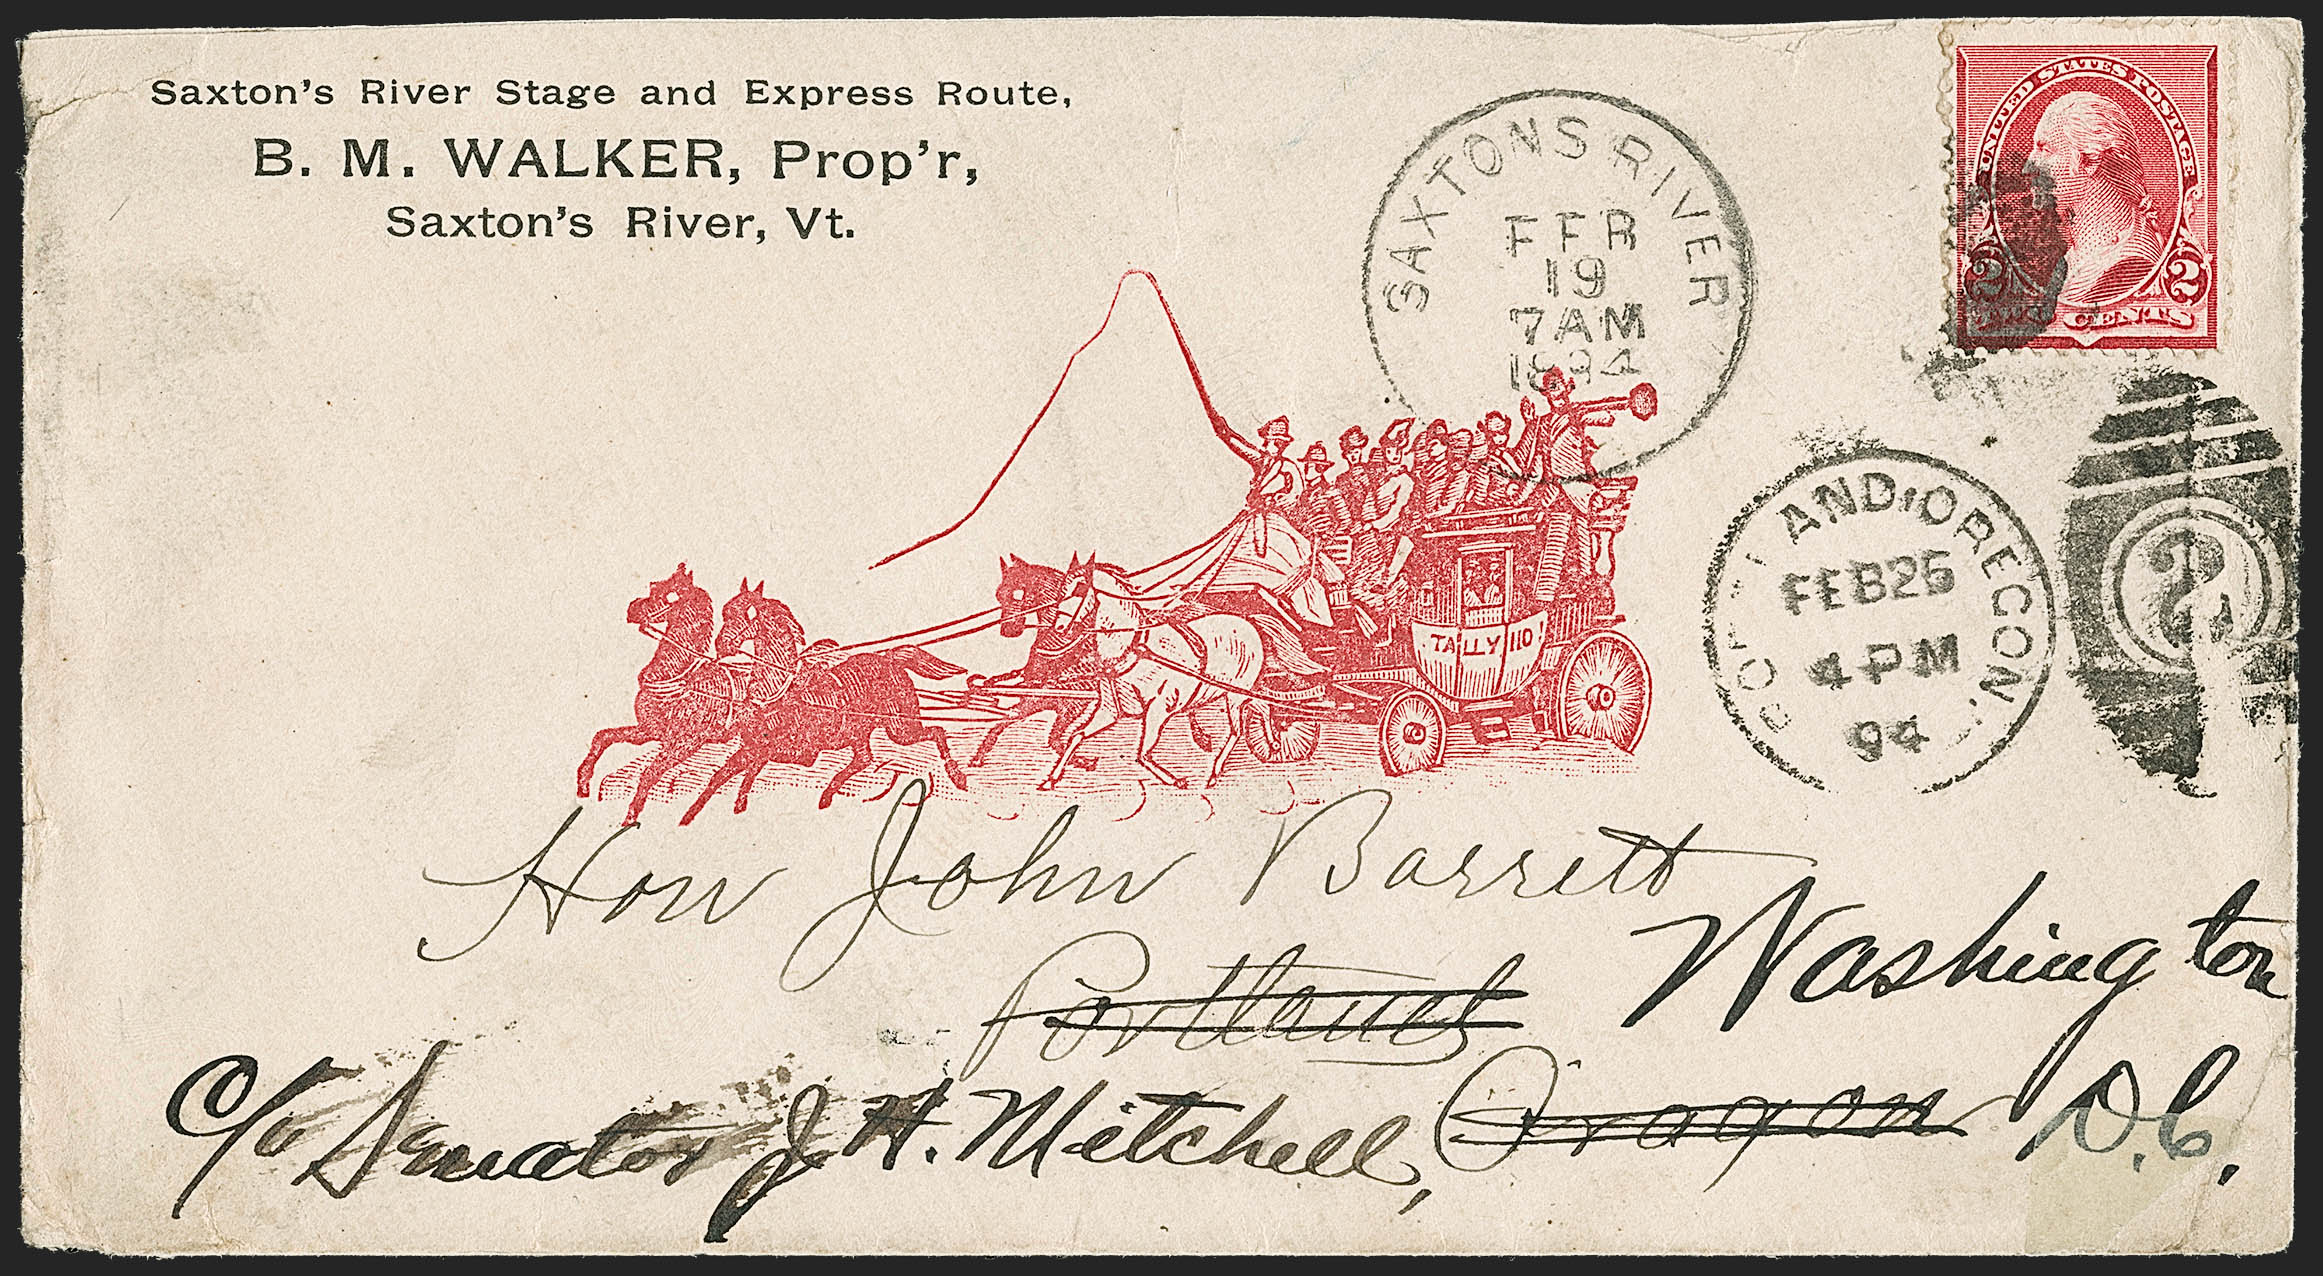 Saxton's River Stage and Express Route,
B. M. WALKER, Prop'r,
Saxton's River, Vt.
SAXTONS RIVER
FEB
19
7 AM
1894
UNITED STATES POSTAGE
2 2
TWO CENTS
PORTLAND, OREGON.
FEB 26
4 PM
94
2
TALLY HO
Hon John Barrett
Portland
Oregon
Washington
D.C.
c/o Senator J. H. Mitchell,